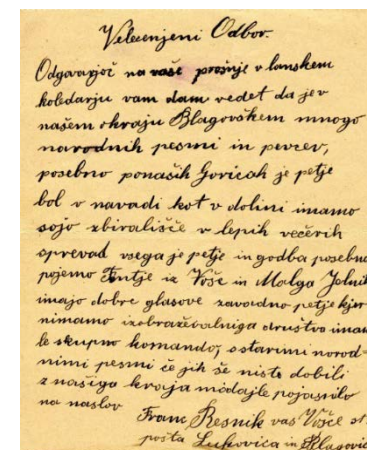 Velecenjeni Odbor.
Odgovarjoč na vaše prošnje v lanskem
koledarju vam dam vedet da je v
našem okraju Blagovškem mnogo
narodnih pesmi in pevcev,
posebno ponaših Goricah je petje
bol v navadi kot v dolini imamo
sojo zbirališče v lepih večerih
oprevad vsega je petje in godba posebno
pojemo Fantje iz Vošc in Malga Jelnik
imajo dobre glasove zavoadno petje kjer
nimamo izobraževalniga društvo imam
le skupno komando, ostarimi norod-
nimi pesmi če jih še niste dobili
z našiga kraja mi dajte pojasnilo
na naslov
Franc Resnik vas Vošce št
pošta Lukovica in Blagovic